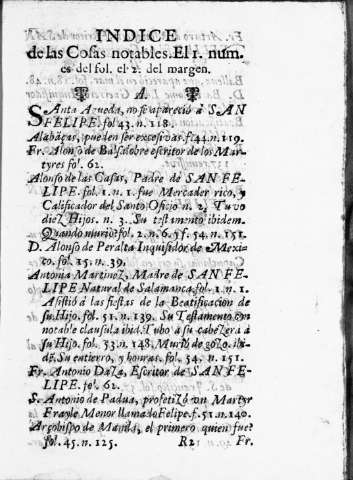 INDICE
de las Cosas notables. El 1. num.
es del fol. el 2. del margen.
A.
SAnta Agueda, no se apareciò â SAN
FELIPE. fol 43. n. 118.
Alabãças, pueden ser excesivas. f. 44. n. 119.
Fr. Alonso de Balsalobre escritor de los Mar-
tyres fol. 62.
Alonso de las Casas, Padre de SAN FE-
LIPE. fol. 1. n. 1. fue Mercader rico, y
Calificador del Santo Oficio n. 2. Tuvo
diez Hijos. n. 3. Su testamento ibidem.
Quando muriò? fol. 2. n. 6. y f. 54. n. 151.
D. Alonso de Peralta Inquisidor de Mexi-
co. fol. 15. n. 39.
Antonia Martinez, Madre de SAN FE-
LIPE Natural de Salamanca. fol. 1. n. 1.
Asistiò â las fiestas de la Beatificacion de
su Hijo. fol. 51. n. 139. Su Testamento con
notable clausula ibid. Tubo â su cabezera â
su Hijo. fol. 53. n. 148. Muriò de gozo. ibi-
dẽ. Su entierro, y honras. fol. 54. n. 151.
Fr. Antonio Daza, Escritor de SAN FE-
LIPE. fol. 62.
S. Antonio de Padua, profetizó vn Martyr
Frayle Menor llamado Felipe. f. 51. n. 140.
Arçobispo de Manila, el primero quien fue?
fol. 45. n. 125. R2 Fr.